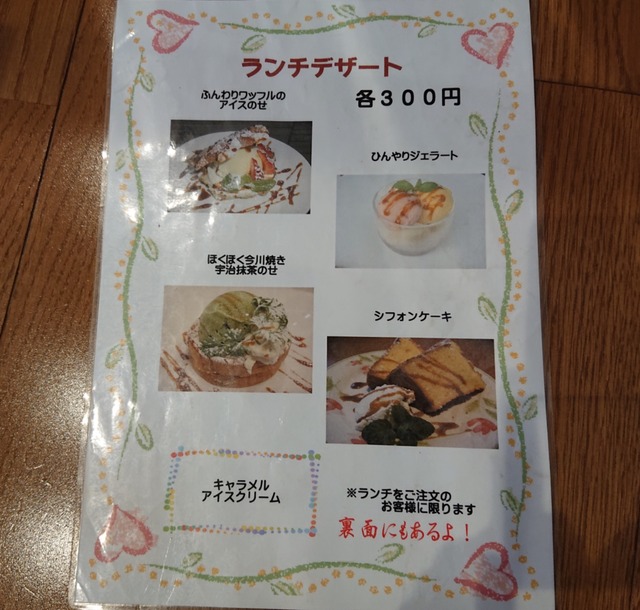 ランチデザート
各３００円
ふんわりワッフルの
アイスのせ
ひんやりジェラート
ほくほく今川焼き
宇治抹茶のせ
シフォンケーキ
キャラメル
アイスクリーム
※ランチをご注文の
お客様に限ります
裏面にもあるよ！